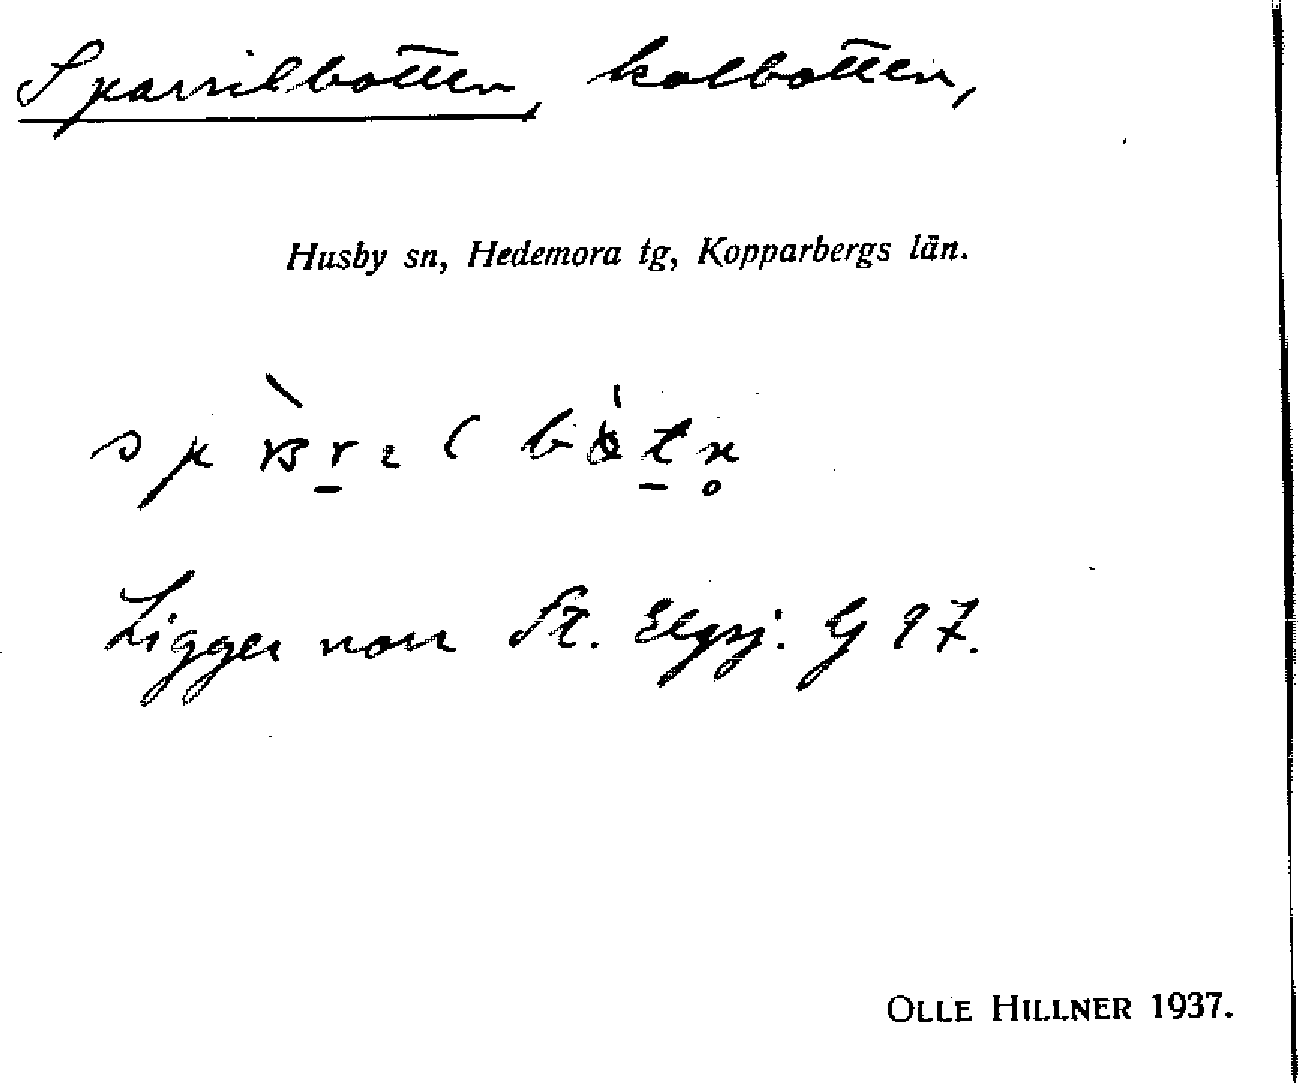 Sparrilbotten, kolbotten,
Husby sn, Hedemora tg, Kopparbergs län.
Ligger norr St. Elgsj. G 97.
OLLE HILLNER 1937.